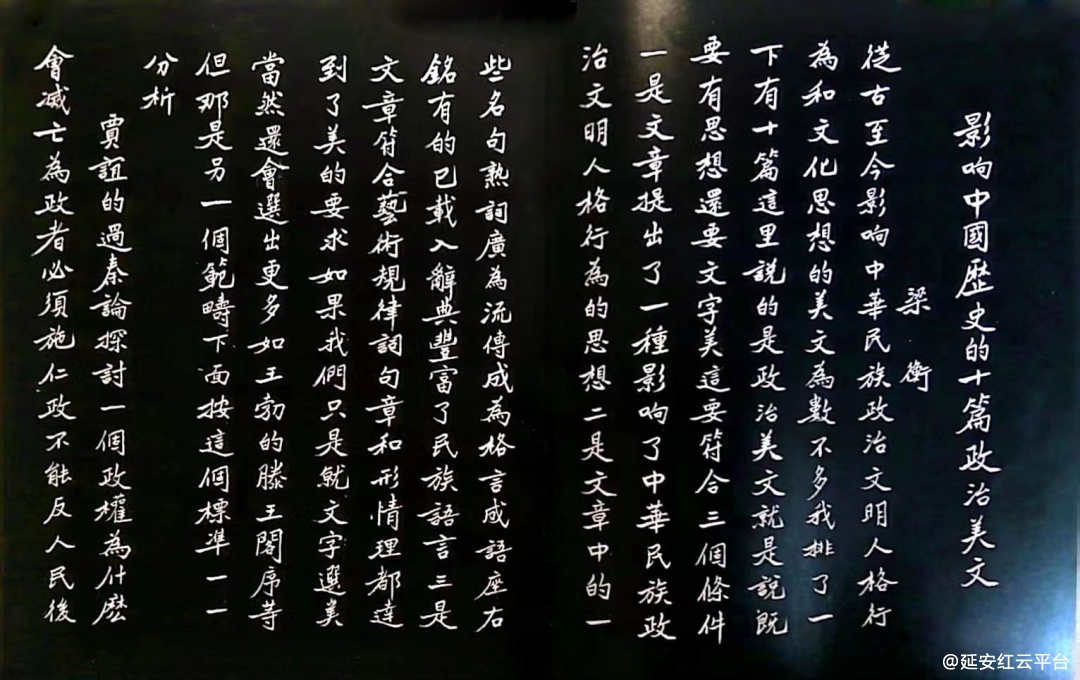 影响中國歷史的十篇政治美文
梁衡
從古至今影响中華民族政治文明人格行
為和文化思想的美文為數不多我排了一
下有十篇這里説的是政治美文就是説既
要有思想還要文字美這要符合三個條件
一是文章提出了一種影响了中華民族政
治文明人格行為的思想二是文章中的一
些名句熟詞廣為流傳成為格言成語座右
銘有的已載入辭典豐富了民族語言三是
文章符合藝術規律詞句章和形情理都達
到了美的要求如果我們只是就文字選美
當然還會選出更多如王勃的滕王閣序等
但那是另一個範疇下面按這個標準一一
分析
賈誼的過秦論探討一個政權為什麽
會滅亡為政者必須施仁政不能反人民後
@延安红云平台